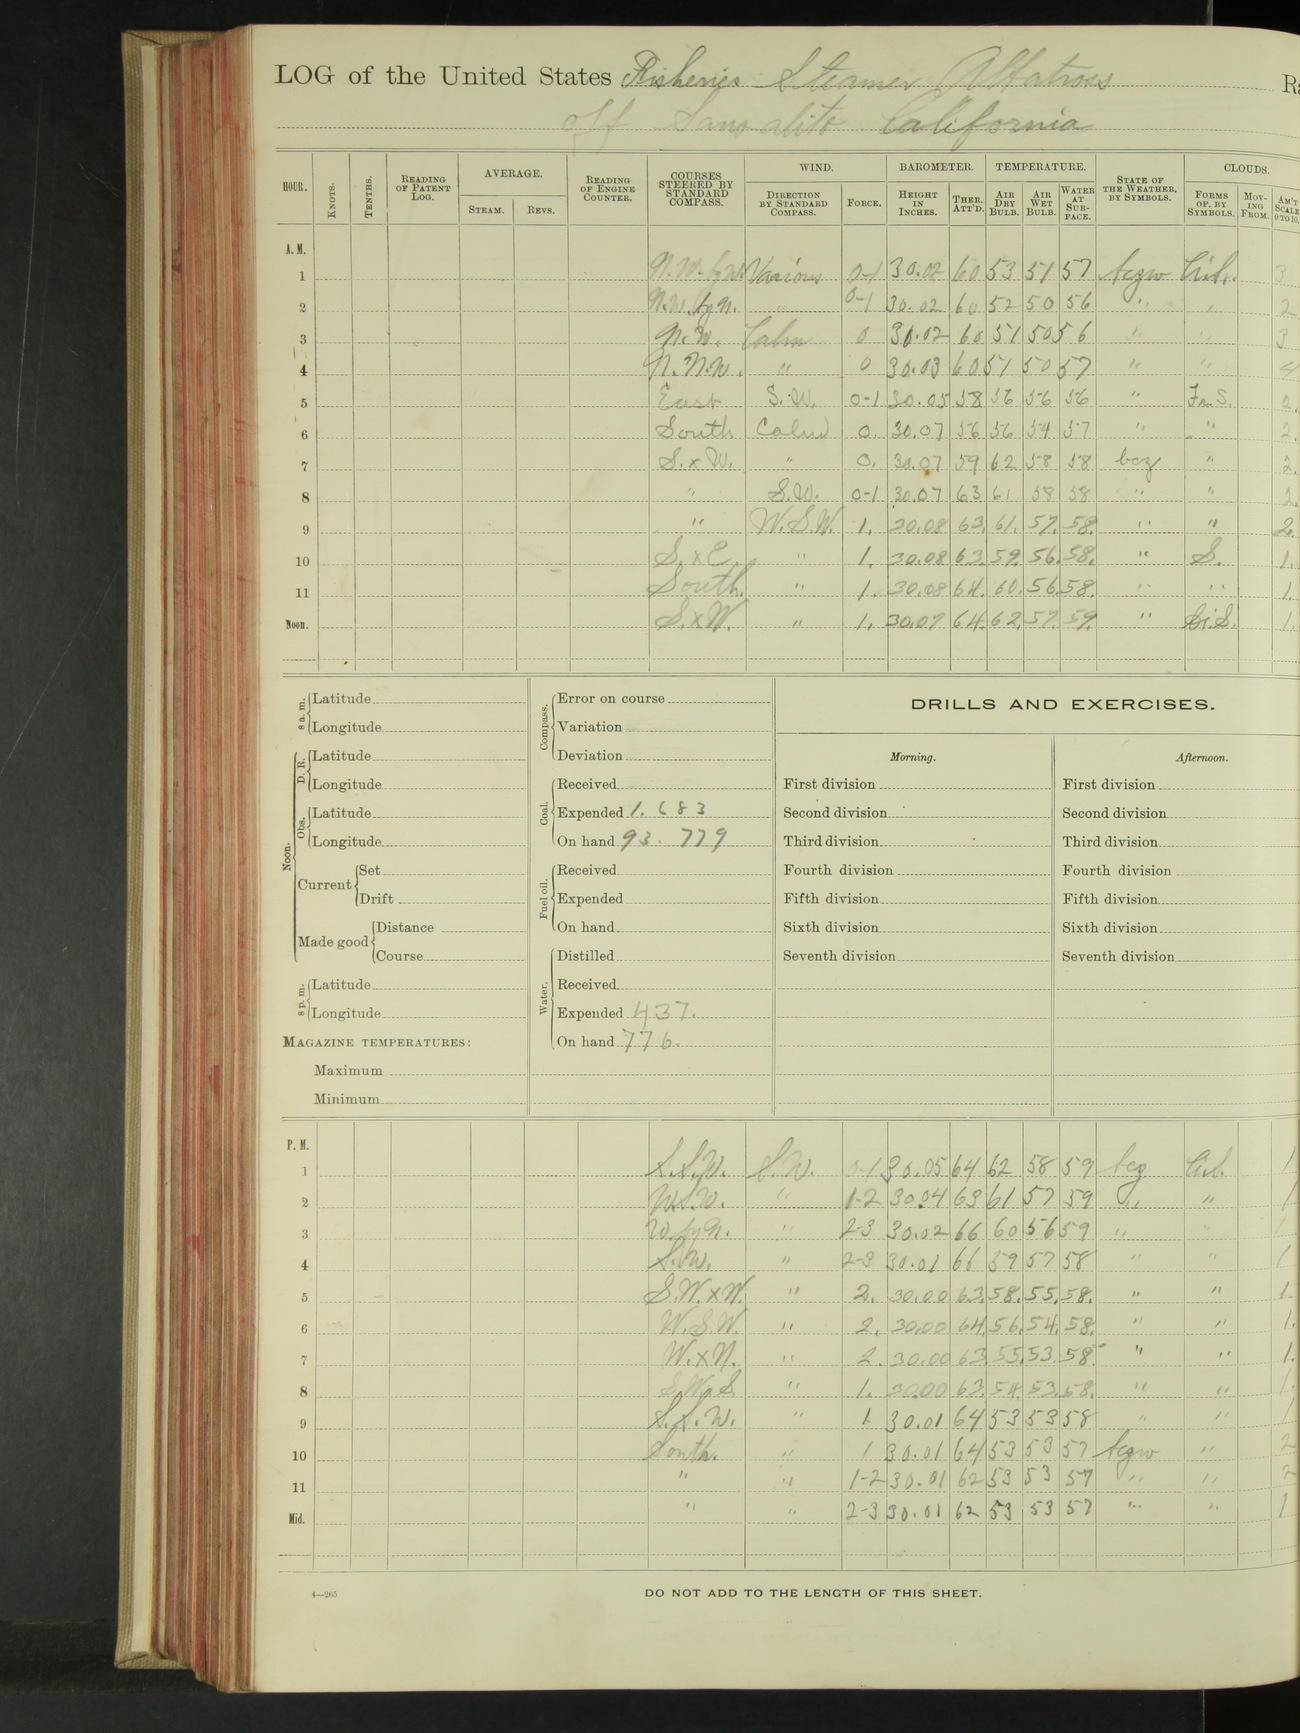 LOG of the United States Fisheries Steamer Albatross Ra
off Sausalito California
HOUR. KNOTS. TENTHS. READING OF PATENT LOG. AVERAGE. STEAM. REVS. READING OF ENGINE COUNTER. COURSES STEERED BY STANDARD COMPASS. WIND. DIRECTION BY STANDARD COMPASS. FORCE. BAROMETER. HEIGHT IN INCHES. THER. ATT'D. TEMPERATURE. AIR DRY BULB. AIR WET BULB. WATER AT SURFACE. STATE OF THE WEATHER, BY SYMBOLS. CLOUDS. FORMS OF, BY SYMBOLS. MOVING FROM. AM'T SCALE 0 TO 10.
A. M.
1 N.W. by W. Various 0-1 30.02 60 53 51 57 bczw Ci.S. 3
2 N.W. by N. " 0-1 30.02 60 52 50 56 " " 2
3 N.W. Calm 0 30.02 60 51 50 56 " " 3
4 N.N.W. " 0 30.03 60 51 50 57 " " 4
5 East S.W. 0-1 30.05 58 56 56 56 " 2.
6 South Calm 0. 30.07 56 56 54 57 " " 2.
7 S.xW. " 0. 30.07 59 62 58 58 bcz " 2.
8 " S.W. 0-1 30.07 63 61 58 58 " " 2.
9 " W.S.W. 1. 30.08 63. 61. 57. 58. " " 2.
10 S.xE. " 1. 30.08 63. 59. 56. 58. " S. 1.
11 South. " 1. 30.08 64. 60. 56. 58. " " 1.
Noon. S.xW. " 1. 30.07 64. 62. 57. 59. " Ci.S. 1.
8 a. m. Latitude
Longitude
Noon. D. R. Latitude
Longitude
Obs. Latitude
Longitude
Current Set
Drift
Made good Distance
Course
8 p. m. Latitude
Longitude
MAGAZINE TEMPERATURES:
Maximum
Minimum
Compass. Error on course
Variation
Deviation
Coal. Received
Expended 1.683
On hand 93.779
Fuel oil. Received
Expended
On hand
Water. Distilled
Received
Expended 437.
On hand 776.
DRILLS AND EXERCISES.
Morning. Afternoon.
First division First division
Second division Second division
Third division Third division
Fourth division Fourth division
Fifth division Fifth division
Sixth division Sixth division
Seventh division Seventh division
P. M.
1 S.S.W. S.W. 0-1 30.05 64 62 58 59 bcz Ci.S. 1
2 W.S.W. " 1-2 30.04 63 61 57 59 " " 1
3 W. by N. " 2-3 30.02 66 60 56 59 " " 1
4 S.W. " 2-3 30.01 66 59 57 58 " " 1
5 S.W.xW. " 2. 30.00 63. 58. 55. 58. " " 1.
6 W.S.W. " 2. 30.00 64. 56. 54. 58. " " 1.
7 W.xN. " 2. 30.00 63. 55. 53. 58. " " 1.
8 S.W.xS. " 1. 30.00 63. 54. 53. 58. " " 1.
9 S.S.W. " 1 30.01 64 53 53 58 " " 1
10 South. " 1 30.01 64 53 53 57 bczw " 2
11 " " 1-2 30.01 62 53 53 57 " " 2
Mid. " " 2-3 30.01 62 53 53 57 " " 1
4—265 DO NOT ADD TO THE LENGTH OF THIS SHEET.